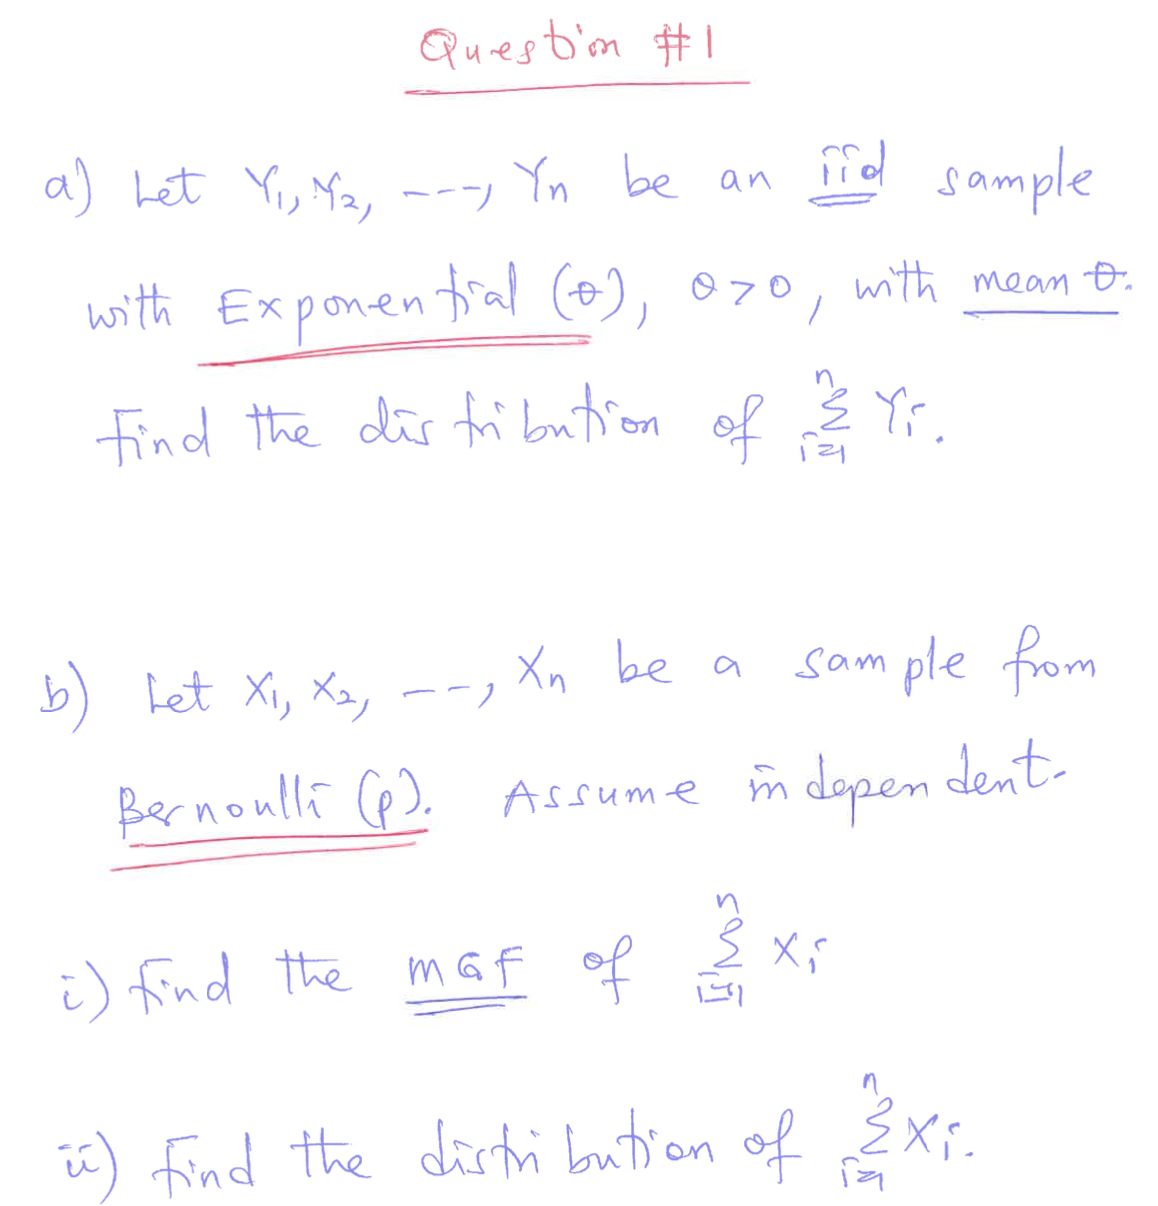 Question #1
a) Let Y₁, Y₂, ---, Yn be an iid sample
with Exponential (θ), θ>0, with mean θ.
Find the distribution of ∑ⁿᵢ₌₁ Yᵢ.
b) Let X₁, X₂, ---, Xn be a sample from
Bernoulli (p). Assume independent.
i) Find the MGF of ∑ⁿᵢ₌₁ Xᵢ
ii) Find the distribution of ∑ⁿᵢ₌₁ Xᵢ.